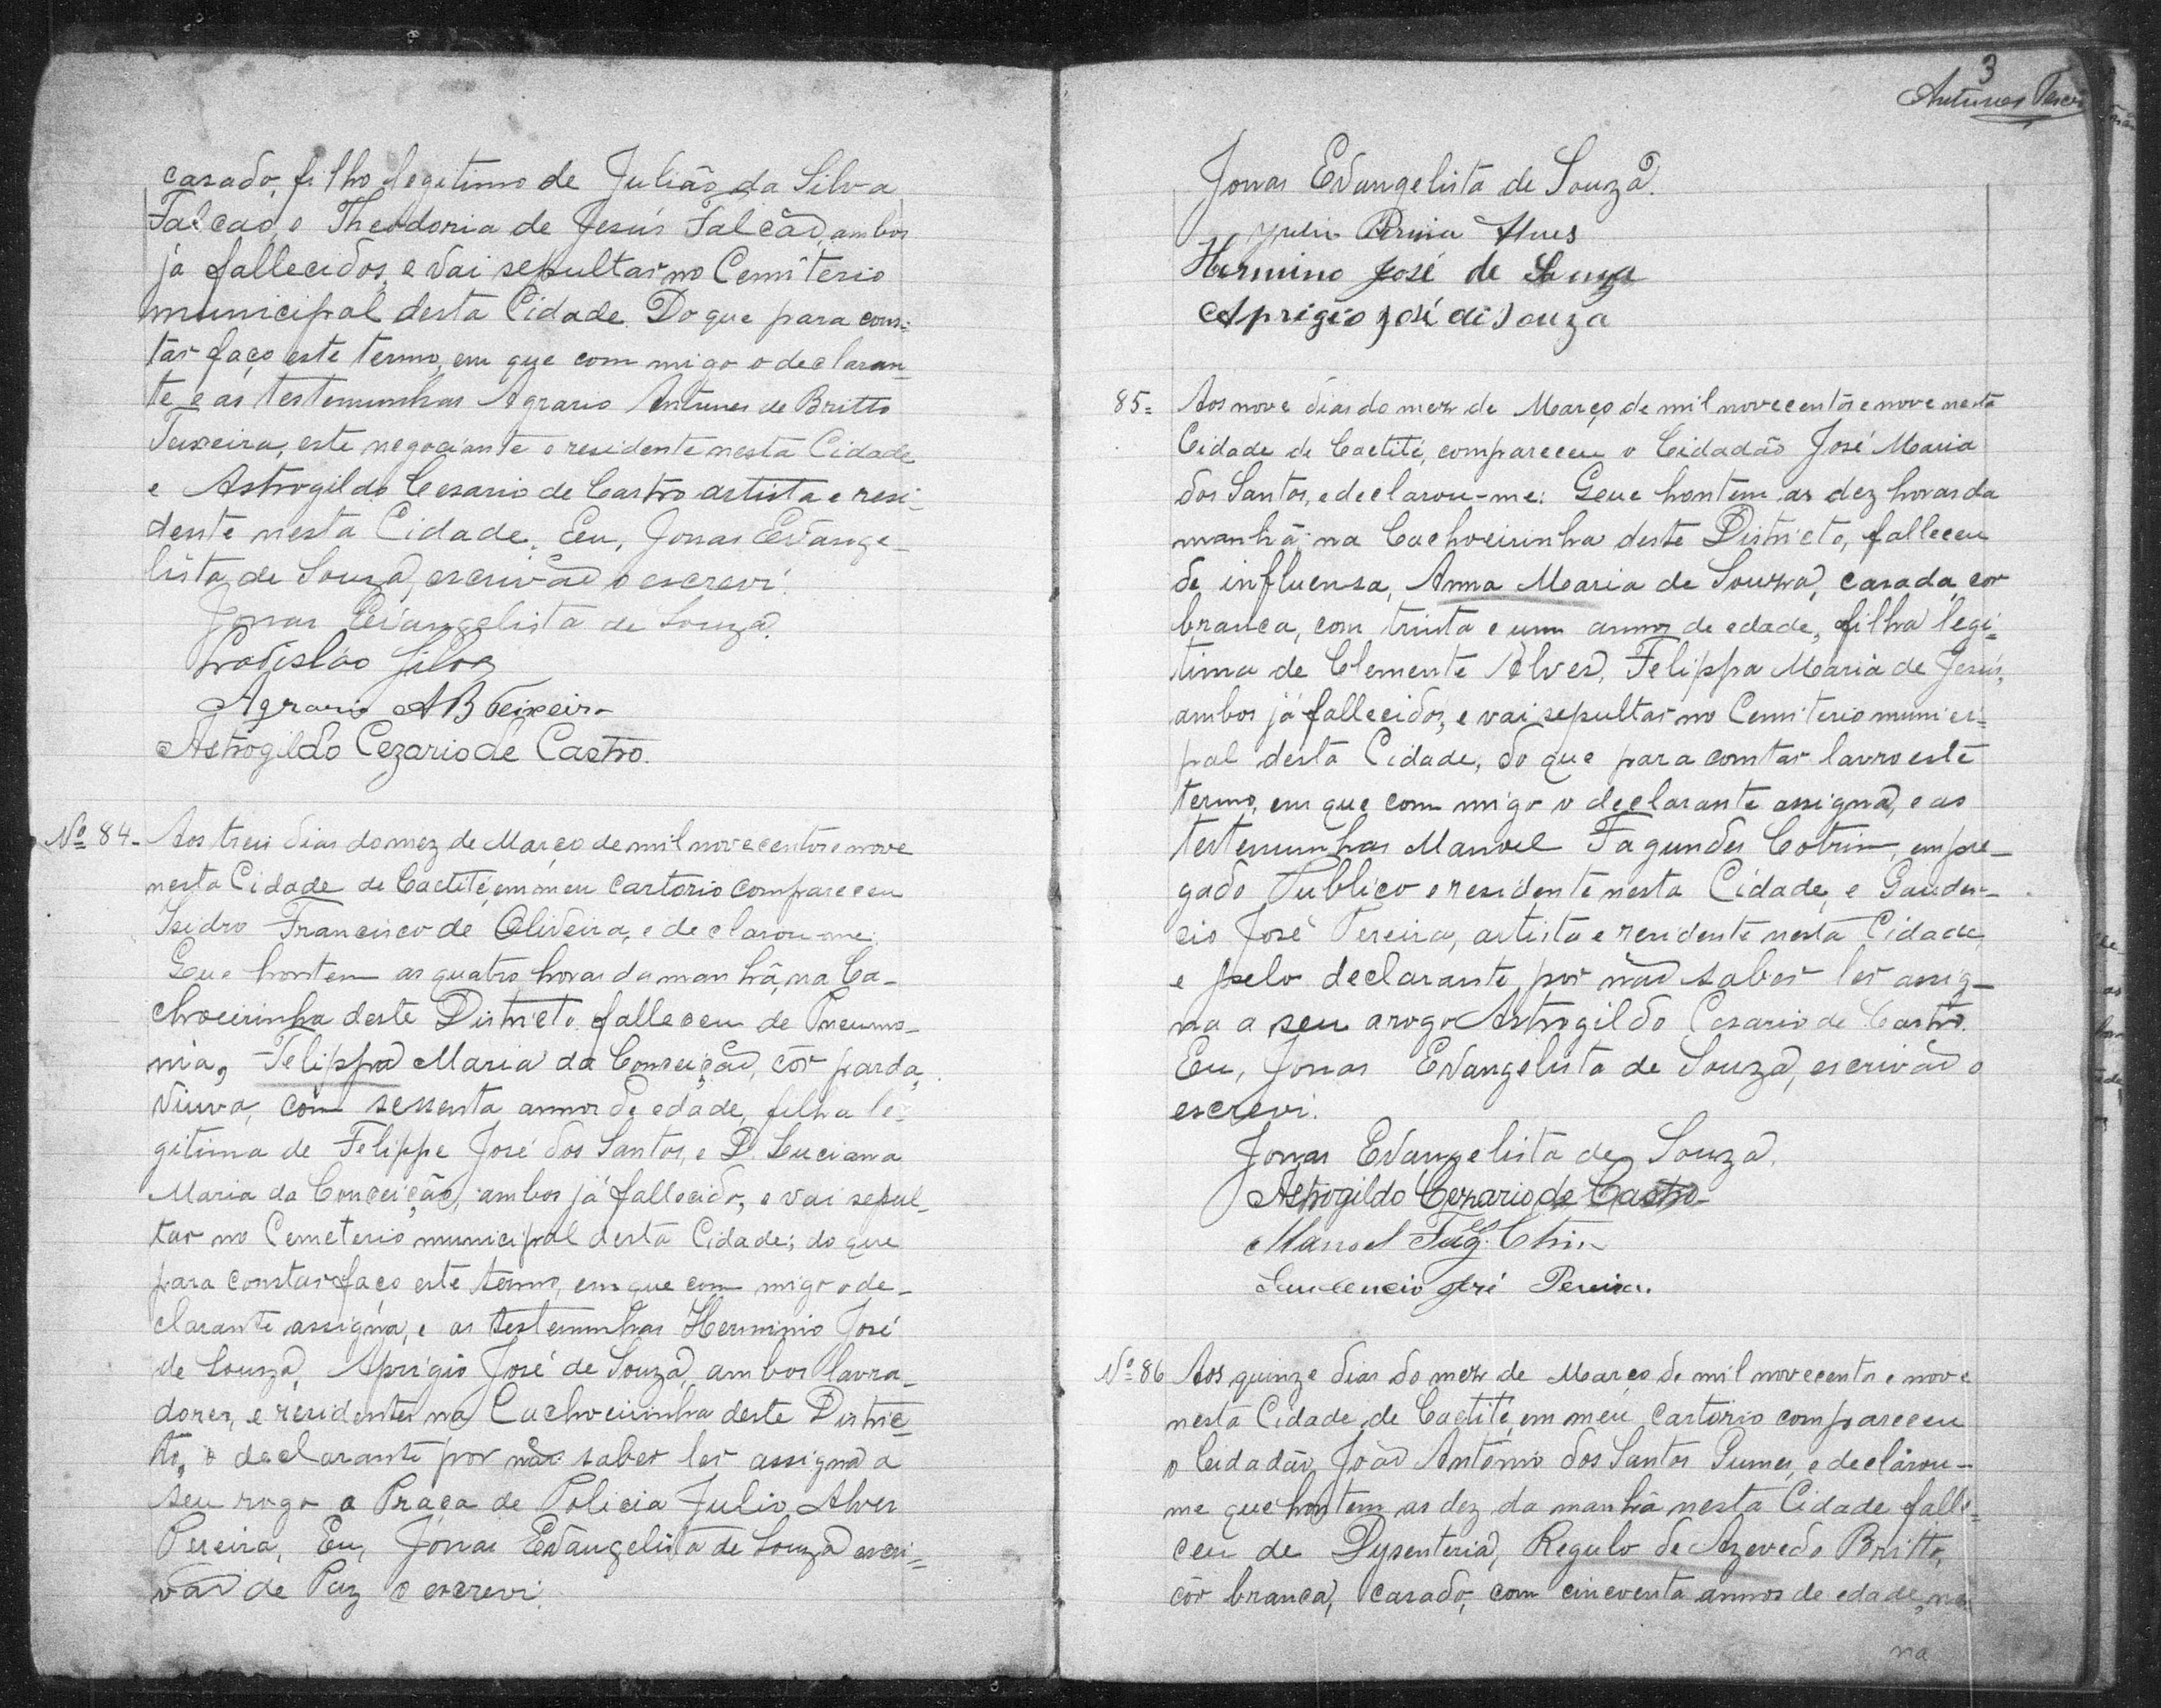 casado, filho legitimo de Julião da Silva
Falcão, e Theodoria de Jesús Falcão, ambos
já fallecidos, e vai sepultar no Cemiterio
municipal desta Cidade. Do que para cons-
tar faço este termo, em que com migo o declaran-
te e as testemunhas Agrario Antunes de Britto
Teixeira, este negociante e residente nesta Cidade
e Astrogildo Cesario de Castro artista e resi-
dente nesta Cidade. Eu, Jonas Evange-
lista de Souza, escrivão o escrevi.
Jonas Evangelista de Souza.
Ladislão Silva
Agrario A B Teixeira
Astrogildo Cezario de Castro.
Nº 84- Aos treis dias do mez de Março de mil nove centos e nove
nesta Cidade de Caetité, em meu cartorio compareceu
Isidro Francisco de Oliveira, e declarou-me:
Que hontem as quatro horas da manhã, na Ca-
choeirinha deste Districto falleceu de Pneumo-
nia, Felippa Maria da Conceição, côr parda,
viuva, com sessenta annos de edade, filha le-
gitima de Felippe José dos Santos, e D. Luciana
Maria da Conceição, ambos já fallecidos, e vai sepul-
tar no Cemeterio municipal desta Cidade; do que
para constar faço este termo, em que com migo o de-
clarante assigna, e as testemunhas Herminio José
de Souza, Aprigio José de Souza, ambos lavra-
dores, e residentes na Cachoeirinha deste Distric-
to, o declarante por não saber ler assigna a
seu rogo a Praça de Policia Julio Alves
Pereira, Eu, Jonas Evangelista de Souza escri-
vão de Paz o escrevi.
3
Antunes
Jonas Evangelista de Souza.
Hermino José de Souza
Aprigio José de Souza
85= Aos nove dias do mez de Março de mil nove centos e nove nesta
Cidade de Caetité, compareceu o Cidadão José Maria
dos Santos, e declarou-me: Que hontem as dez horas da
manhã, na Cachoeirinha deste Districto, falleceu
de influensa, Anna Maria de Souza, casada, cor
branca, com trinta e um annos de edade, filha legi-
tima de Clemente Alves, Felippa Maria de Jesús,
ambos já fallecidos, e vai sepultar no Cemiterio munici-
pal desta Cidade, do que para constar lavro este
termo, em que com migo o declarante assigna, e as
testemunhas Manoel Fagundes Cotrim, empre-
gado Publico e residente nesta Cidade, e Gauden-
cio José Pereira, artista e residente nesta Cidade,
e pelo declarante por não saber ler assig-
na a seu arogo Astrogildo Cesario de Castro.
Eu, Jonas Evangelista de Souza, escrivão o
escrevi.
Jonas Evangelista de Souza.
Astrogildo Cezario de Castro
Manoel Fag.es Cotrim
Gaudencio José Pereira.
Nº 86 Aos quinze dias do mez de Março de mil nove centos e nove
nesta Cidade de Caetité, em meu cartorio compareceu
o Cidadão João Antonio dos Santos Gumes, e declarou-
me que hontem as dez da manhã nesta Cidade falle-
ceu de Dysenteria, Regulo de Azevedo Britto,
côr branca, casado, com cincoenta annos de edade, na
na